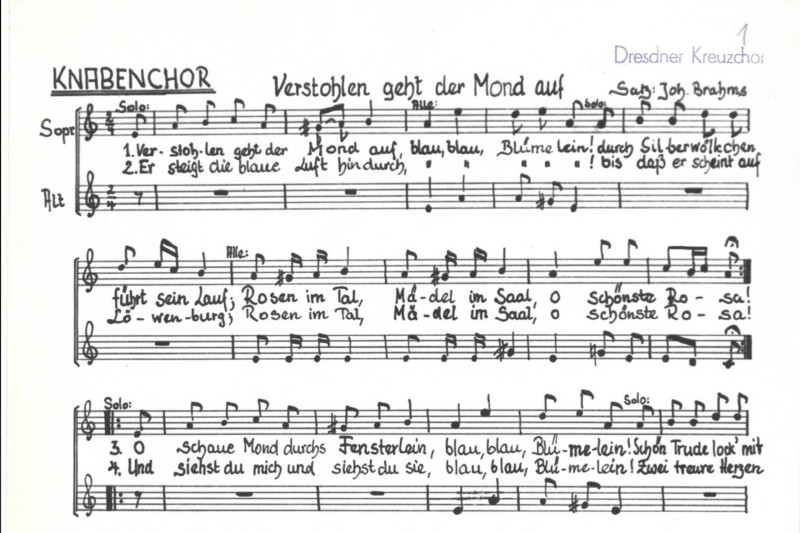 1
Dresdner Kreuzchor
KNABENCHOR
Verstohlen geht der Mond auf
Satz: Joh. Brahms
Solo: Alle: Solo:
Sopr
1. Ver- stoh-len geht der Mond auf, blau, blau, Blümelein! durch Silberwölkchen
2. Er steigt die blaue Luft hindurch, " " " " "! bis daß er scheint auf
Alt
Alle:
führt sein Lauf; Rosen im Tal, Mä-del im Saal, o schönste Ro - sa!
Lö-wen-burg; Rosen im Tal, Mä-del im Saal, o schönste Ro - sa!
Solo: Solo:
3. O schaue Mond durchs Fensterlein, blau, blau, Blü-me-lein! Schön Trude lock' mit
4. Und siehst du mich und siehst du sie, blau, blau, Blü-me-lein! Zwei treure Herzen